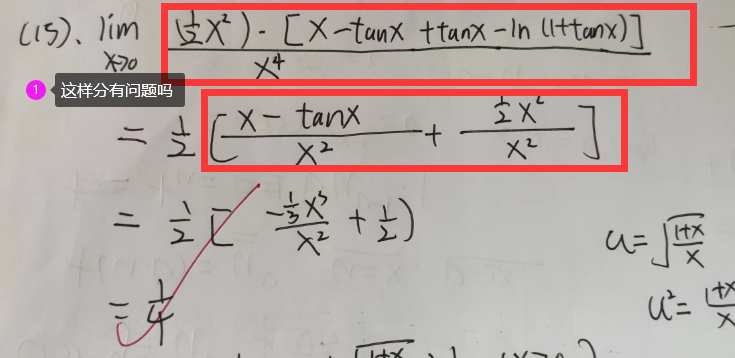 (15). lim x→0 (½x²)·[x-tanx+tanx-ln(1+tanx)] / x⁴
1 这样分有问题吗
= ½[(x-tanx)/x² + ½x²/x²]
= ½[ -⅓x³/x² + ½)
u=√((1+x)/x)
= ¼
u²= (1+x)/x